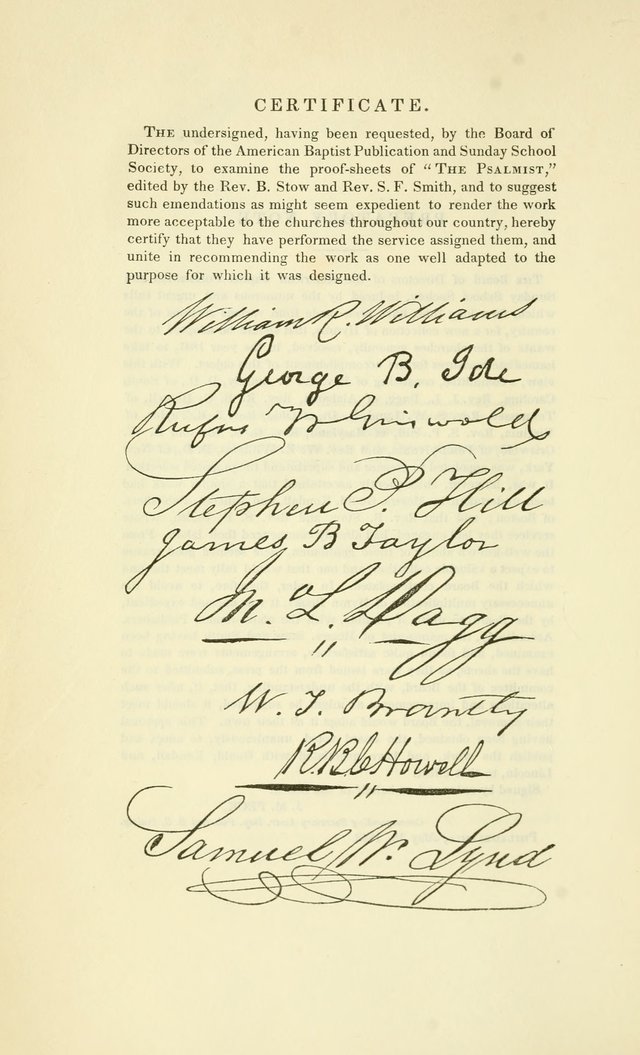 CERTIFICATE.
THE undersigned, having been requested, by the Board of
Directors of the American Baptist Publication and Sunday School
Society, to examine the proof-sheets of "THE PSALMIST,"
edited by the Rev. B. Stow and Rev. S. F. Smith, and to suggest
such emendations as might seem expedient to render the work
more acceptable to the churches throughout our country, hereby
certify that they have performed the service assigned them, and
unite in recommending the work as one well adapted to the
purpose for which it was designed.
William R. Williams
George B. Ide
Rufus W Griswold
Stephen P. Hill
James B Taylor
W. T. Brantly
R. B. C Howell
Samuel W. Lynd